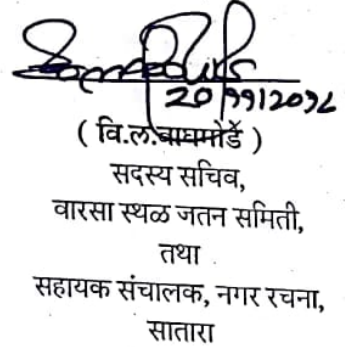 20/११/2०१८
( वि.ल.बाघमोडे )
सदस्य सचिव,
वारसा स्थळ जतन समिती,
तथा
सहायक संचालक, नगर रचना,
सातारा